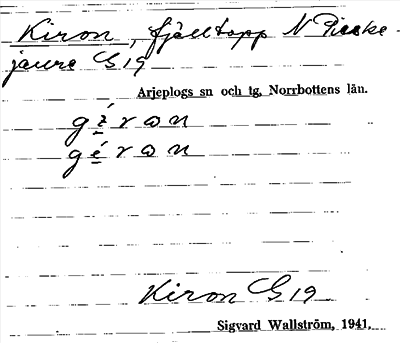 Kiron, fjälltopp N Pieske-
jaure G 19
Arjeplogs sn och tg, Norrbottens län.
Kiron G 19
Sigvard Wallström, 1941.